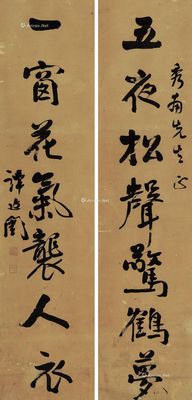 秀甫先生正
五夜松聲驚鶴夢
一窗花氣襲人衣
譚延闓